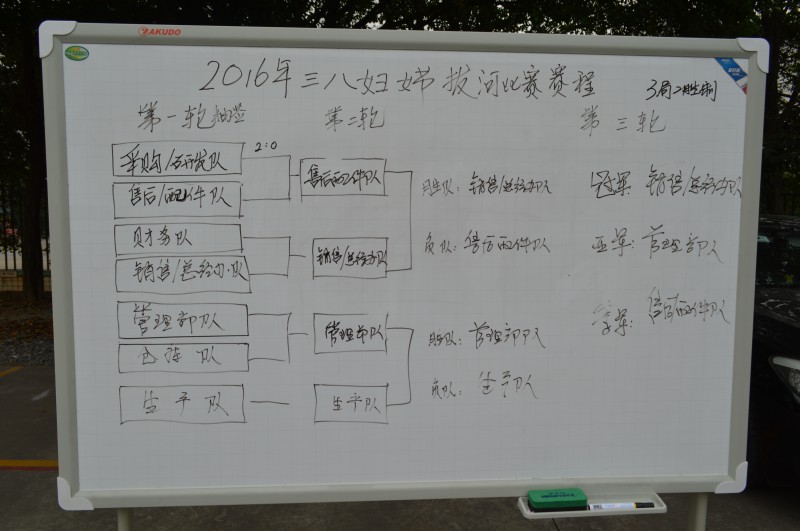 YAKUDO
2016年三八妇女节拔河比赛赛程
3局2胜制
第一轮抽签
第二轮
第三轮
采购/研发队
2:0
售后/配件队
售后配件队
财务队
销售/总经办队
销售/总经办队
管理部队
管理部队
队
生产队
生产队
胜队: 销售/总经办队
负队: 售后配件队
胜队: 管理部队
负队: 生产队
冠军 销售/总经办队
亚军: 管理部队
季军: 售后配件队